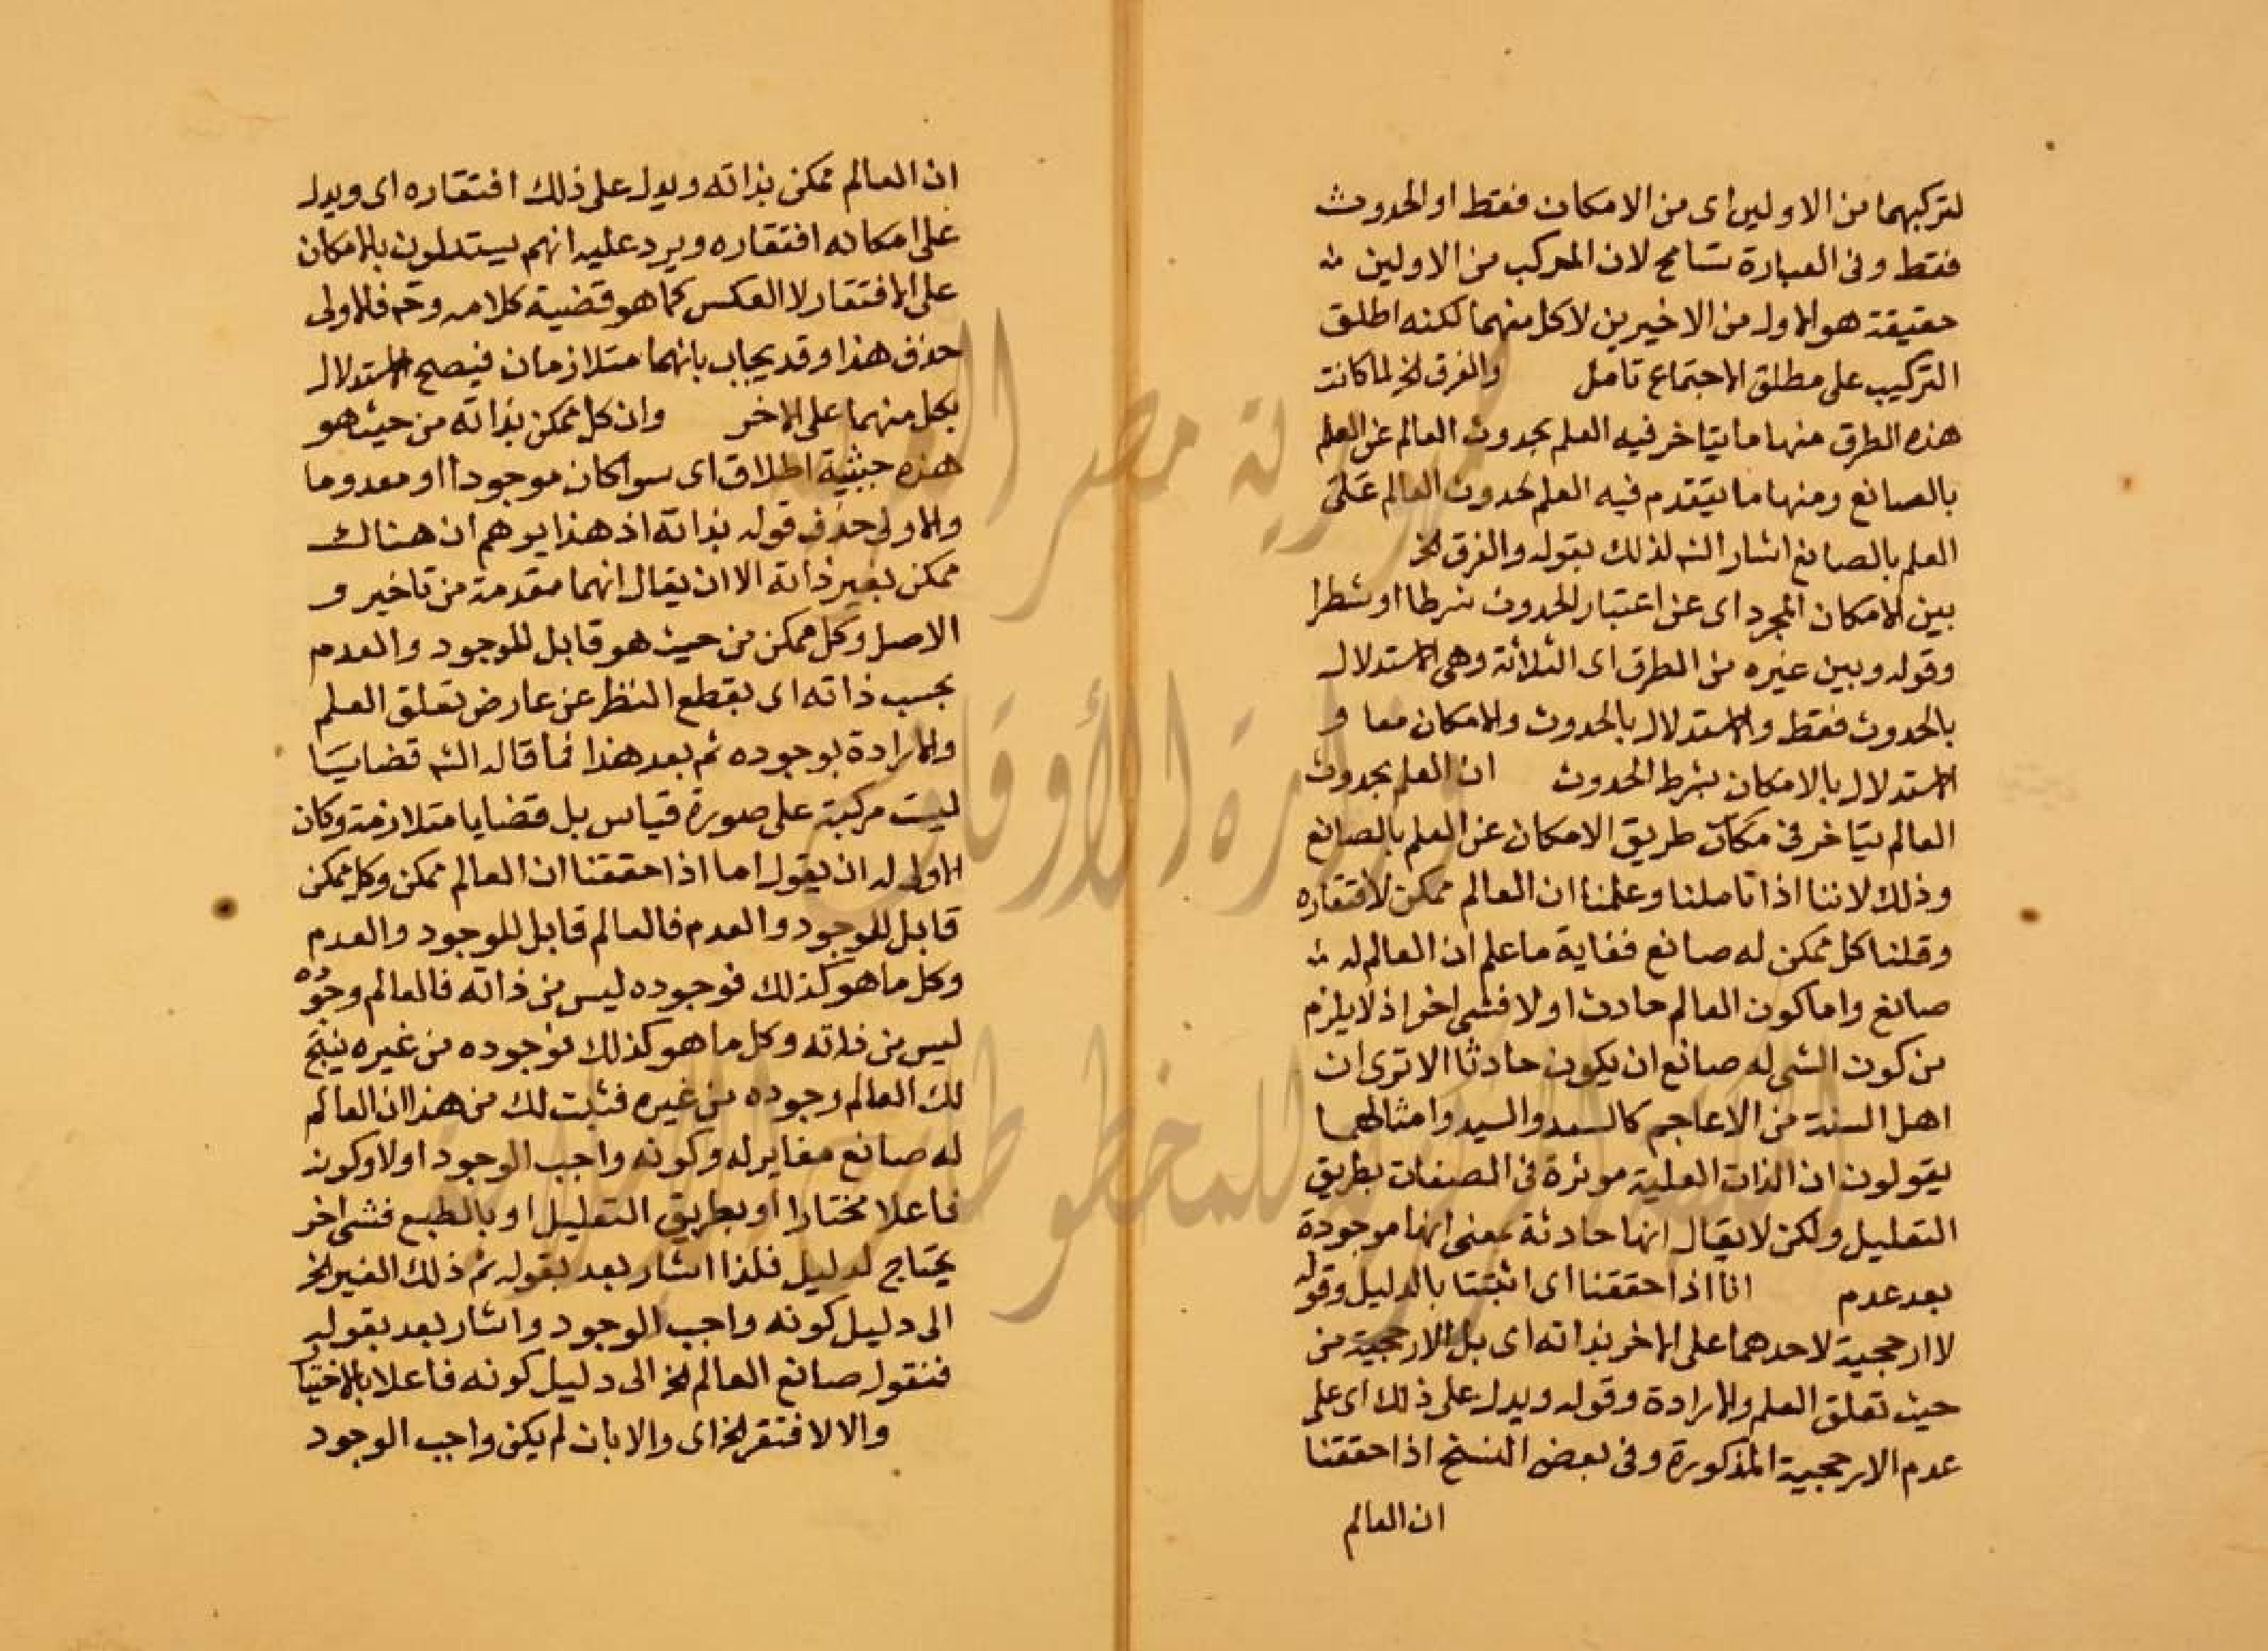 لتركبهما من الاولين اى من الامكان فقط او الحدوث
فقط وفى العبارة تسامح لان المركب من الاولين
حقيقة هو الاول من الاخيرين لا كل منهما لكنه اطلق
التركيب على مطلق الاجتماع تامل والفرق الخ لما كانت
هذه الطرق منها ما يتاخر فيه العلم بحدوث العالم عن العلم
بالصانع ومنها ما يتقدم فيه العلم بحدوث العالم على
العلم بالصانع اشار الشه لذلك بقوله والفرق الخ
بين الامكان المجرد اى عن اعتبار الحدوث شرطا او شطرا
وقوله وبين غيره من الطرق اى الثلاثة وهى الاستدلال
بالحدوث فقط والاستدلال بالحدوث والامكان معا و
الاستدلال بالامكان بشرط الحدوث ان العلم بحدوث
العالم يتاخر فى طريق الامكان عن العلم بالصانع
وذلك لاننا اذا تاملنا وعلمنا ان العالم ممكن لافتقاره
وقلنا كل ممكن له صانع فغاية ما علم ان العالم له
صانع واما كون العالم حادث اولا فشى اخر اذ لا يلزم
من كون الشى له صانع ان يكون حادثا الا ترى ان
اهل السنة من الاعاجم كالسعد والسيد وامثالهما
يقولون ان الذات العلية موثرة فى الصفات بطريق
التعليل ولكن لا يقال انها حادثة بمعنى انها موجودة
بعد عدم انا اذا حققنا اى اثبتنا بالدليل وقوله
لا ارجحية لاحدهما على الاخر بذاته اى بل الارجحية من
حيث تعلق العلم والارادة وقوله ويدل على ذلك اى على
عدم الارجحية المذكورة وفى بعض النسخ اذا حققنا
ان العالم
ان العالم ممكن بذاته ويدل على ذلك افتقاره اى ويدل
على امكانه افتقاره ويرد عليه انهم يستدلون بالامكان
على الافتقار لا العكس كما هو قضية كلامه وح فالاولى
حذف هذا وقد يجاب بانهما متلازمان فيصح الاستدلال
بكل منهما على الاخر وان كل ممكن بذاته من حيث هو
هذه حيثية اطلاق اى سوا كان موجودا او معدوما
والاولى حذف قوله بذاته اذ هذا يوهم ان هناك
ممكن بغير ذاته الا ان يقال انهما مقدمة من تاخير و
الاصل وكل ممكن من حيث هو قابل للوجود والعدم
بحسب ذاته اى بقطع النظر عن عارض تعلق العلم
والارادة بوجوده ثم بعد هذا فما قاله الشه قضايا
ليست مركبة على صورة قياس بل قضايا متلازمة وكان
الاولى له ان يقول اما اذا حققنا ان العالم ممكن وكل ممكن
قابل للوجود والعدم فالعالم قابل للوجود والعدم
وكل ما هو كذلك فوجوده ليس من ذاته فالعالم وجوده
ليس من ذاته وكل ما هو كذلك فوجوده من غيره ينتج
لك العالم وجوده من غيره فثبت لك من هذا ان العالم
له صانع مغاير له وكونه واجب الوجود اولا وكونه
فاعلا مختارا او بطريق التعليل او بالطبع فشى اخر
يحتاج لدليل فلذا اشار بعد بقوله ثم ذلك الغير الخ
الى دليل كونه واجب الوجود واشار بعد بقوله
فنقول صانع العالم الخ الى دليل كونه فاعلا بالاختيا
والا لافتقر الخ اى والا بان لم يكن واجب الوجود